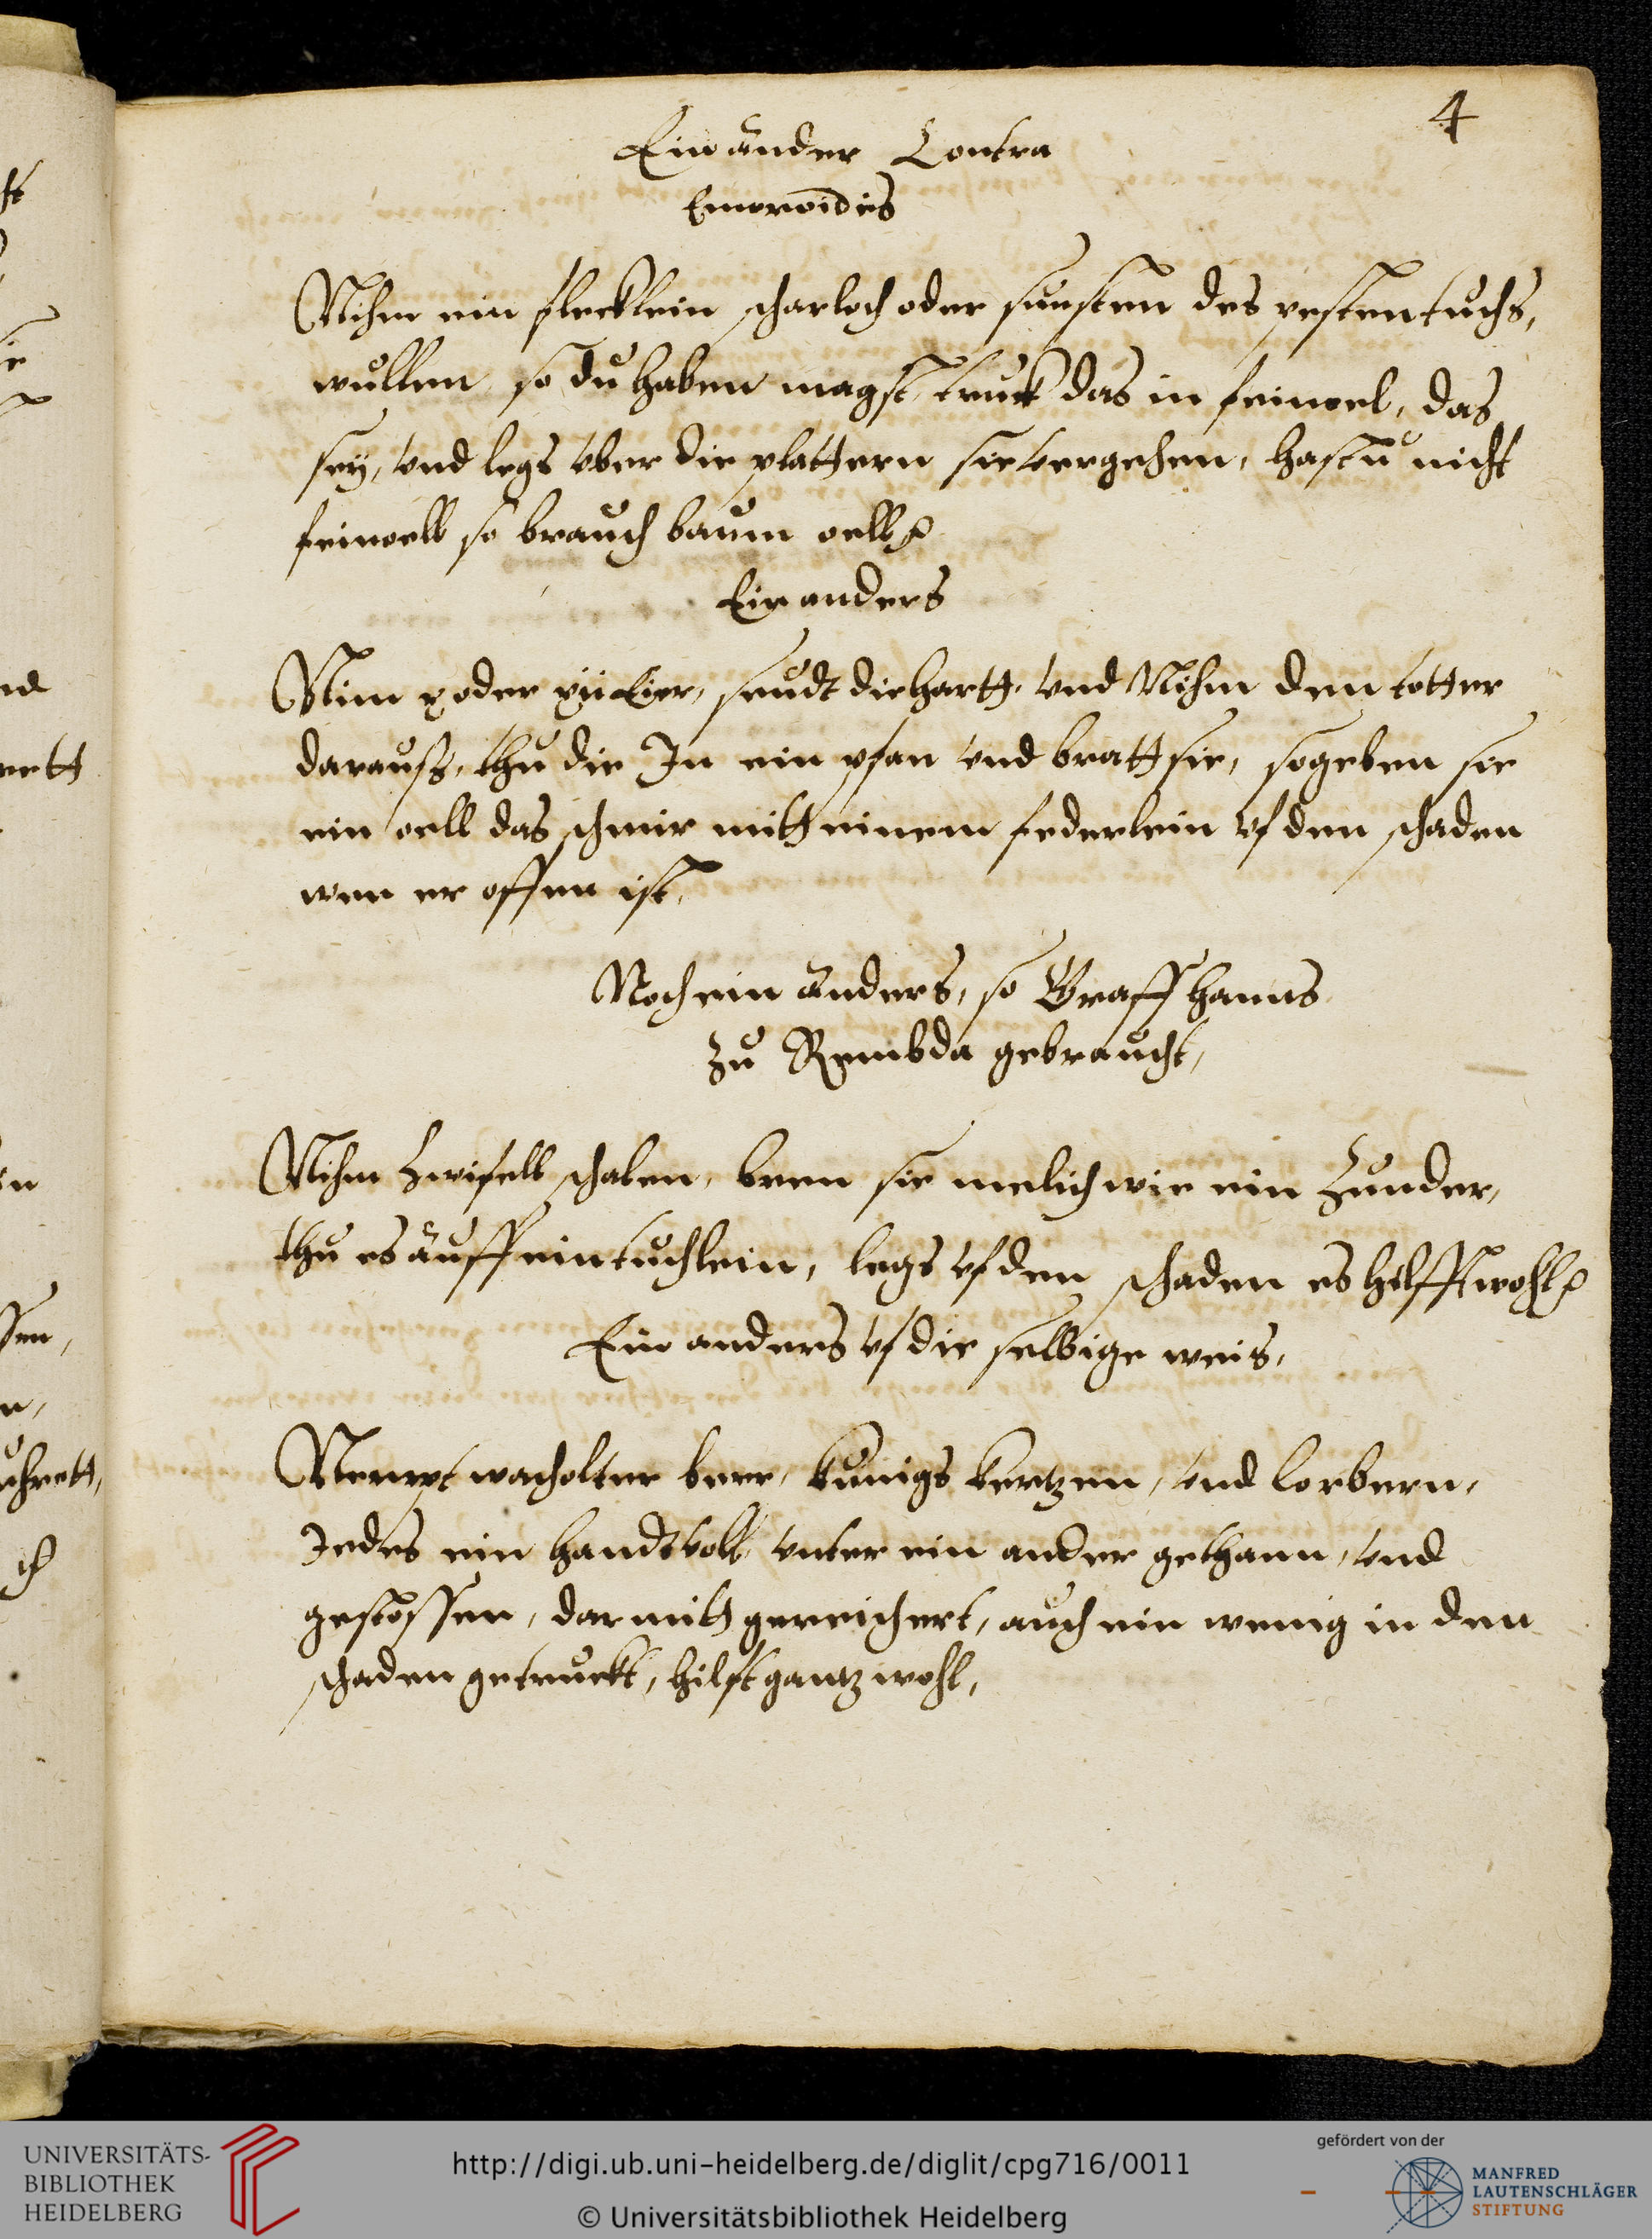 4
Ein ander Contra
Emoroidis
Nihm ein flecklein scharloch oder sunsten des pesten tuchs,
wullen so du haben magst, trutk das in feinoel, das
sey, vnd legs vber die plattern sie vergehen, hastu nicht
feinoell so brauch baum oell
Ein anders
Nim x oder xii Eier, seudt die hartt, vnd Nihm den totter
darauß, thu die In ein pfan vnd bratt sie, so geben sie
ein oell das schmir mitt einem federlein vf den schaden
wen er offen ist,
Noch ein anders, so Graff hanns
zu Rembda gebraucht,
Nihm Zwifell schalen, bren sie melich wie ein Zunder,
thu es auff ein tuchlein, legs vf den schaden es hilfft wohl
Ein anders vf die selbige weis,
Nempt wacholter beer, kunigs kertzen, vnd lorbern,
Jedes ein handtvoll vnter ein ander gethann, vnd
gestossen, dar mitt gereichert, auch ein wenig in den
schaden getruckt, hilft gantz wohl,
UNIVERSITÄTS-
BIBLIOTHEK
HEIDELBERG
http://digi.ub.uni-heidelberg.de/diglit/cpg716/0011
© Universitätsbibliothek Heidelberg
gefördert von der
MANFRED
LAUTENSCHLÄGER
STIFTUNG